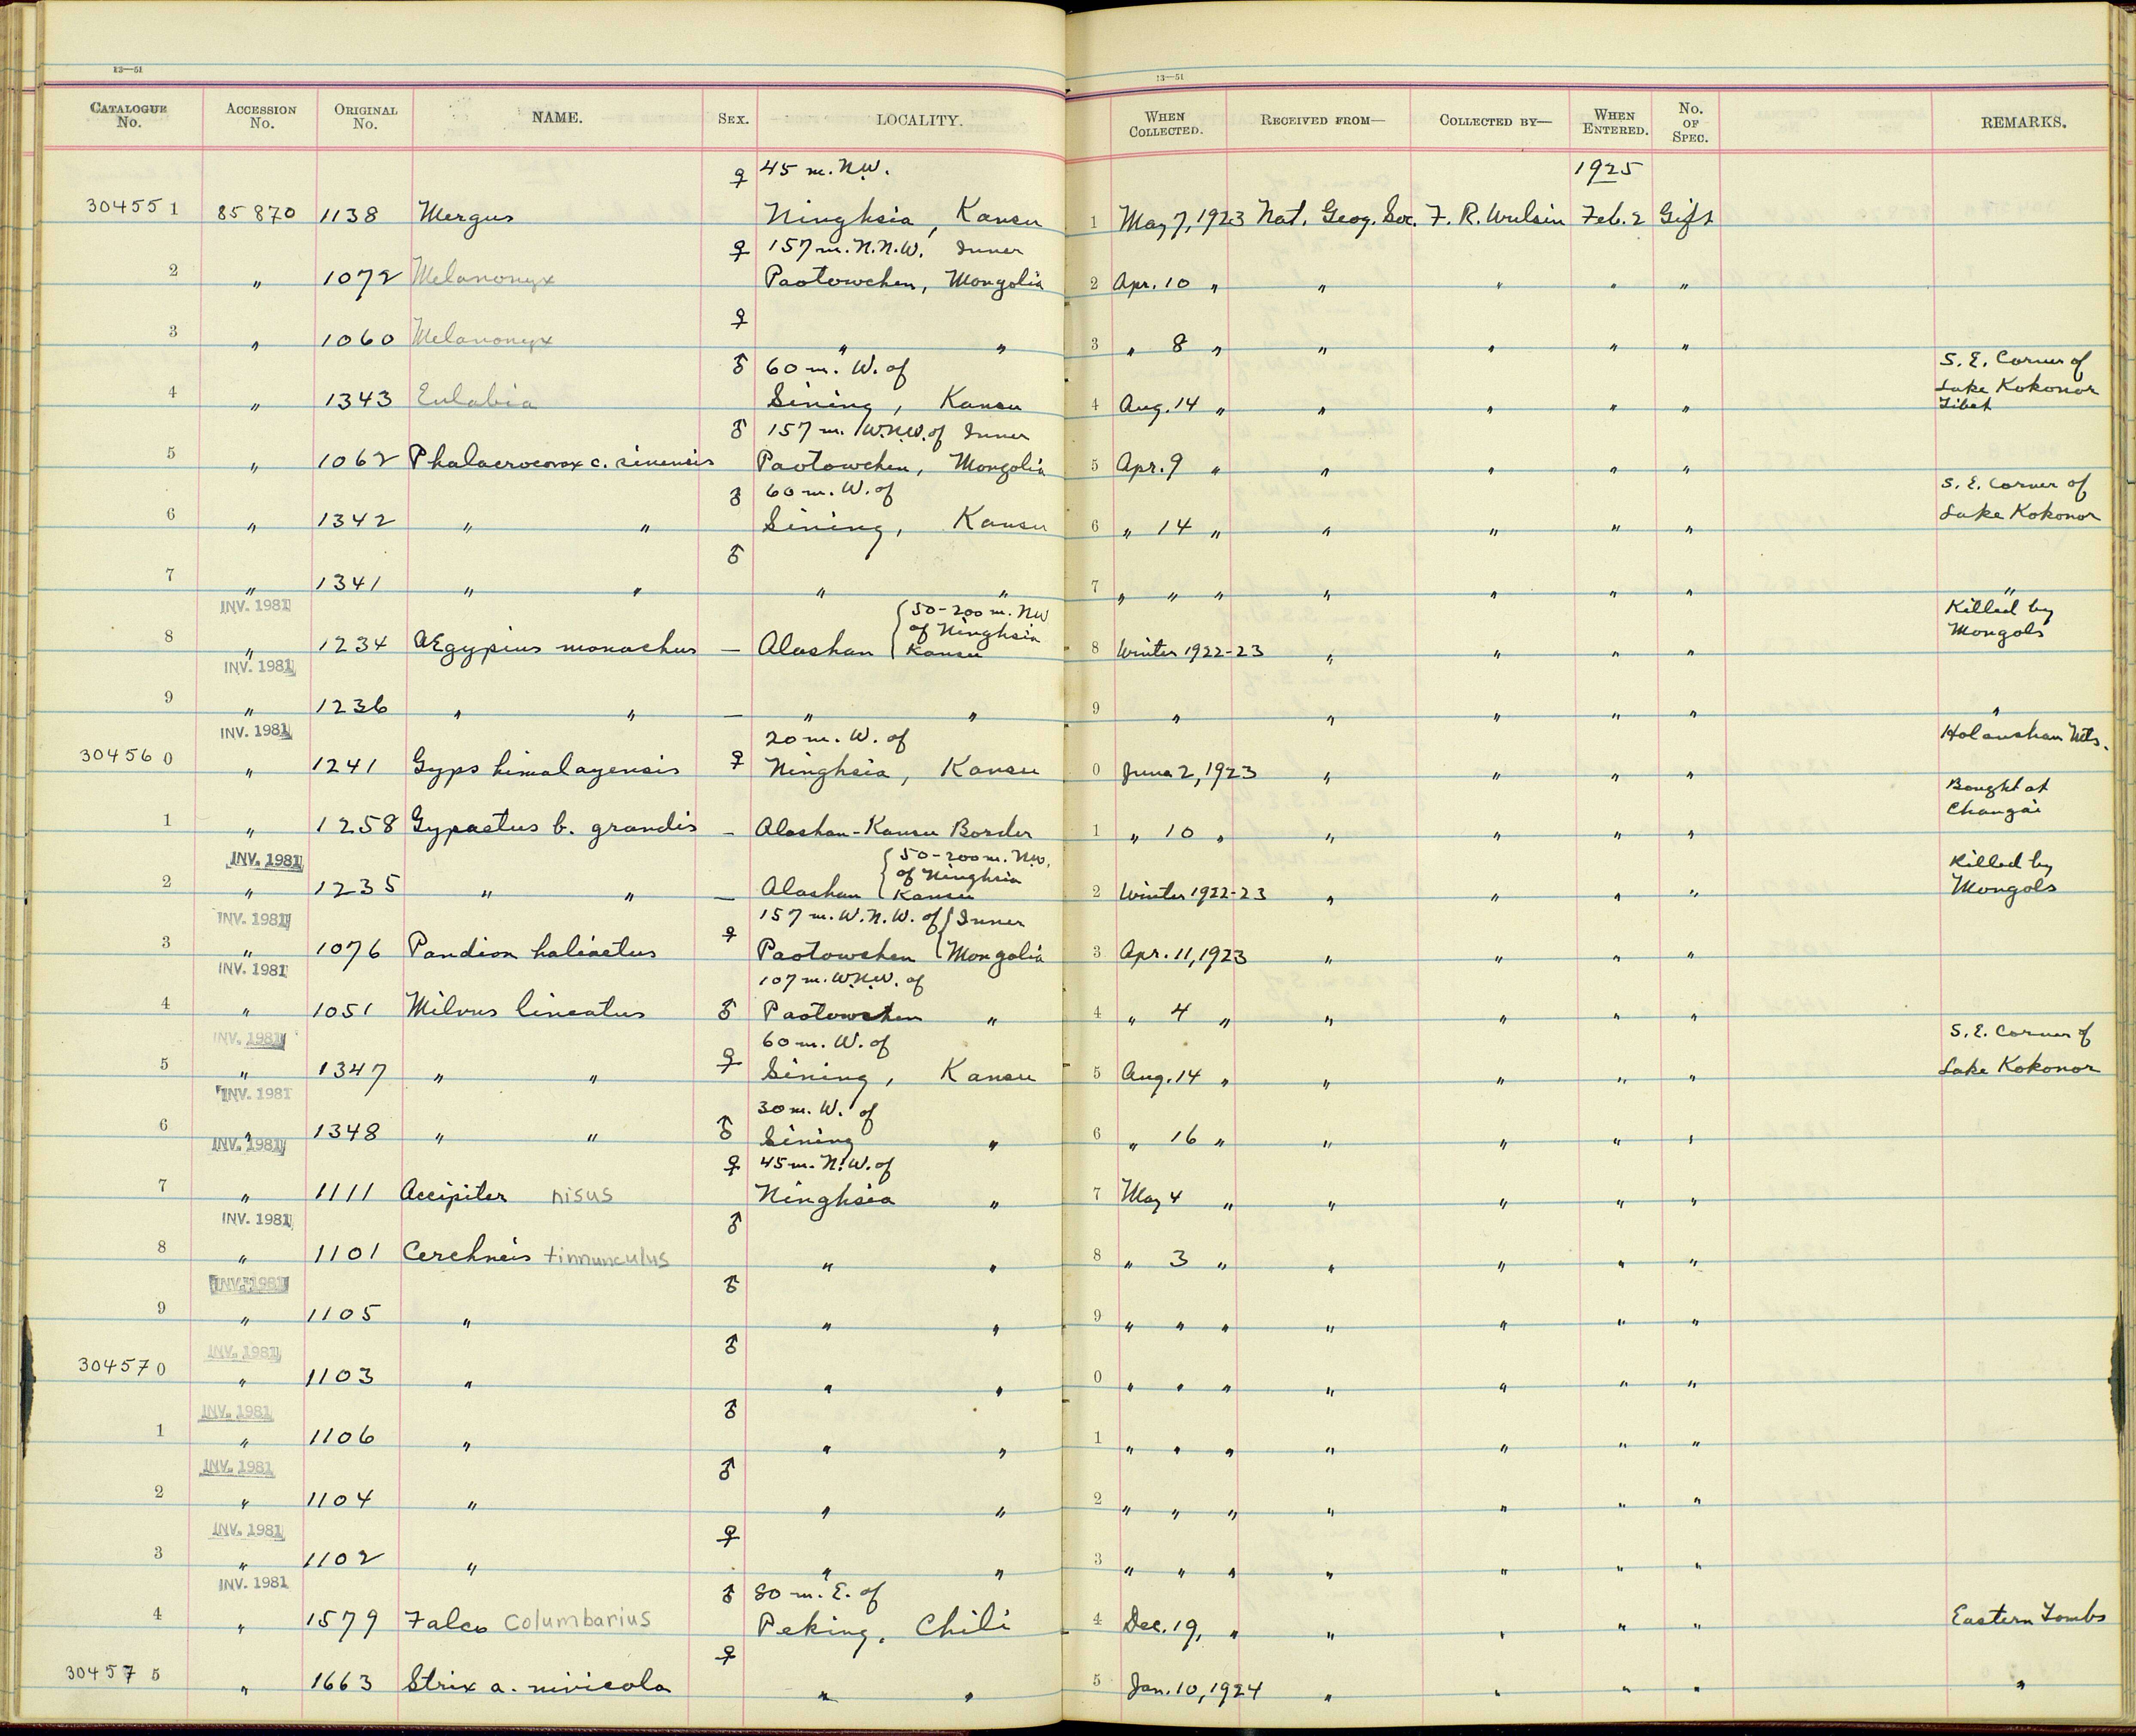 13—51
13—51
CATALOGUE No. ACCESSION No. ORIGINAL No. NAME. SEX. LOCALITY. WHEN COLLECTED. RECEIVED FROM— COLLECTED BY— WHEN ENTERED. No. OF SPEC. REMARKS.
♀ 45 m. N.W. 1925
304551 85870 1138 Mergus Ninghsia, Kansu 1 May 7, 1923 Nat. Geog. Soc. F. R. Wulsin Feb. 2 Gift
♀ 157 m. N.N.W. Inner
2 " 1072 Melanonyx Paotowchen, Mongolia 2 Apr. 10 " " " " "
3 " 1060 Melanonyx ♀ " " 3 " 8 " " " " "
♂ 60 m. W. of S. E. Corner of
4 " 1343 Eulabia Sining, Kansu 4 Aug. 14 " " " " " Lake Kokonor
Tibet
♂ 157 m. W.N.W. of Inner
5 " 1062 Phalacrocorax c. sinensis Paotowchen, Mongolia 5 Apr. 9 " " " " "
♂ 60 m. W. of S. E. Corner of
6 " 1342 " " Sining, Kansu 6 " 14 " " " " " Lake Kokonor
7 " 1341 " " ♂ " " 7 " " " " " " " "
INV. 1981 50-200 m. NW Killed by
of Ninghsia Mongols
8 " 1234 Ægypius monachus — Alashan Kansu 8 Winter 1922-23 " " " "
INV. 1981
9 " 1236 " " — " " 9 " " " " " "
INV. 1981 20 m. W. of Holanshan Mts.
304560 " 1241 Gyps himalayensis ♀ Ninghsia, Kansu 0 June 2, 1923 " " " "
Bought at
Changai
1 " 1258 Gypaetus b. grandis — Alashan-Kansu Border 1 " 10 " " " " "
INV. 1981 50-200 m. N.W. Killed by
of Ninghsia Mongols
2 " 1235 " " — Alashan Kansu 2 Winter 1922-23 " " " "
INV. 1981 157 m. W.N.W. of Inner
3 " 1076 Pandion haliaetus ♀ Paotowchen Mongolia 3 Apr. 11, 1923 " " " "
INV. 1981 107 m. W.N.W. of
4 " 1051 Milvus lineatus ♂ Paotowchen " 4 " 4 " " " " "
INV. 1981 60 m. W. of S. E. Corner of
5 " 1347 " " ♀ Sining, Kansu 5 Aug. 14 " " " " " Lake Kokonor
INV. 1981 30 m. W. of
6 " 1348 " " ♂ Sining " 6 " 16 " " " " "
INV. 1981 ♀ 45 m. N.W. of
7 " 1111 Accipiter nisus Ninghsia " 7 May 4 " " " " "
INV. 1981
8 " 1101 Cerchneis tinnunculus ♂ " " 8 " 3 " " " " "
INV. 1981
9 " 1105 " ♂ " " 9 " " " " " " "
INV. 1981
304570 " 1103 " ♂ " " 0 " " " " " " "
INV. 1981
1 " 1106 " ♂ " " 1 " " " " " " "
INV. 1981
2 " 1104 " ♂ " " 2 " " " " " " "
INV. 1981
3 " 1102 " ♀ " " 3 " " " " " " "
INV. 1981 ♂ 80 m. E. of
4 " 1579 Falco columbarius Peking, Chili 4 Dec. 19, " " " " " Eastern Tombs
304575 " 1663 Strix a. nivicola ♀ " " 5 Jan. 10, 1924 " " " " "